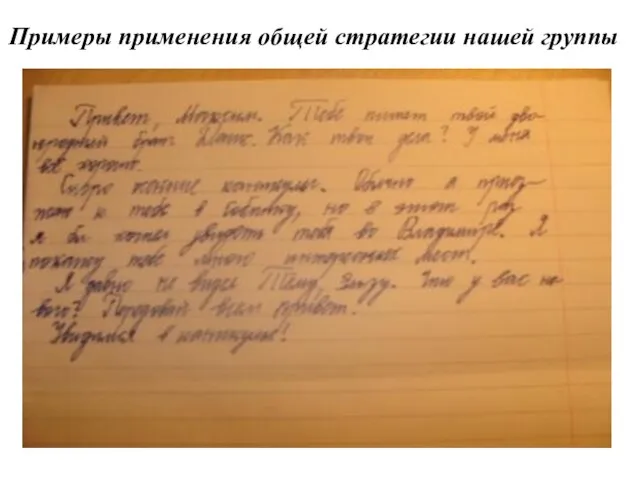 Примеры применения общей стратегии нашей группы
Привет, Максим. Тебе пишет твой дво-
юродный брат Как твои дела? У меня
всё хорошо.
Скоро каникулы. Обычно я приез-
жаю к тебе в но в этот раз
я бы хотел увидеть тебя во Владимире. Я
покажу тебе много интересных мест.
Я давно не видел Тёму, Что у вас но-
вого? Передавай всем привет.
Увидимся в каникулы!